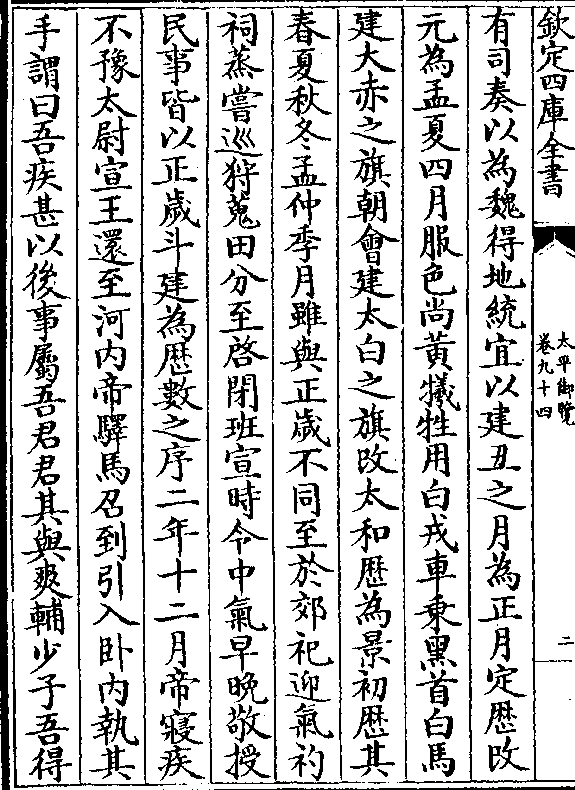 欽定四庫全書
太平御覽
卷九十四
二
有司奏以為魏得地統宜以建丑之月為正月定歴改
元為孟夏四月服色尚黃犧牲用白戎車乘黑首白馬
建大赤之旗朝會建太白之旗改太和歴為景初歴其
春夏秋冬孟仲季月雖與正歲不同至於郊祀迎氣礿
祠蒸嘗巡狩蒐田分至啓閉班宣時令中氣早晚敬授
民事皆以正歲斗建為歴數之序二年十二月帝寢疾
不豫太尉宣王還至河内帝驛馬召到引入卧内執其
手謂曰吾疾甚以後事屬吾君君其與爽輔少子吾得